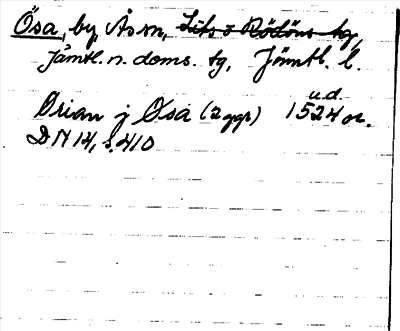 Ösa, by, Ås sn, Lits o Rödöns tg,
Jämtl. n. doms. tg, Jämtl. l.
u.d.
Örian j Ösa (2 ggr) 1524 or.
DN 14, s. 410